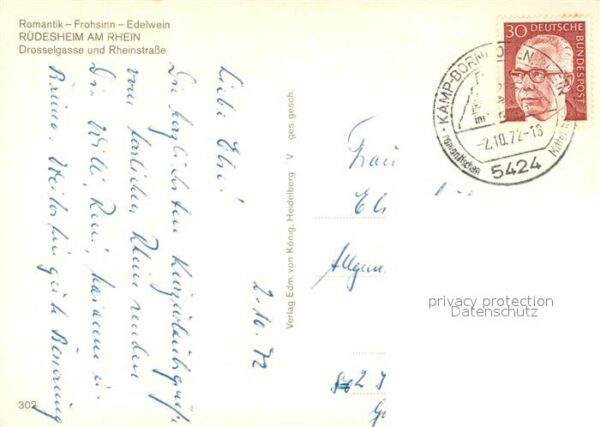 Romantik – Frohsinn – Edelwein
RÜDESHEIM AM RHEIN
Drosselgasse und Rheinstraße
Liebe Elsi!
Die herzlichsten Kurzurlaubsgrüße
vom herrlichen Rhein senden
Dir Willi, Reni, Marianne u.
Bruno. Weiterhin gute Besserung
2.10.72
Verlag Edm. von König, Heidelberg V ges. gesch.
30 DEUTSCHE BUNDESPOST
KAMP-BORNHOFEN
im
romantischen
-2.10.72-18
5424
Frau
privacy protection
Datenschutz
302